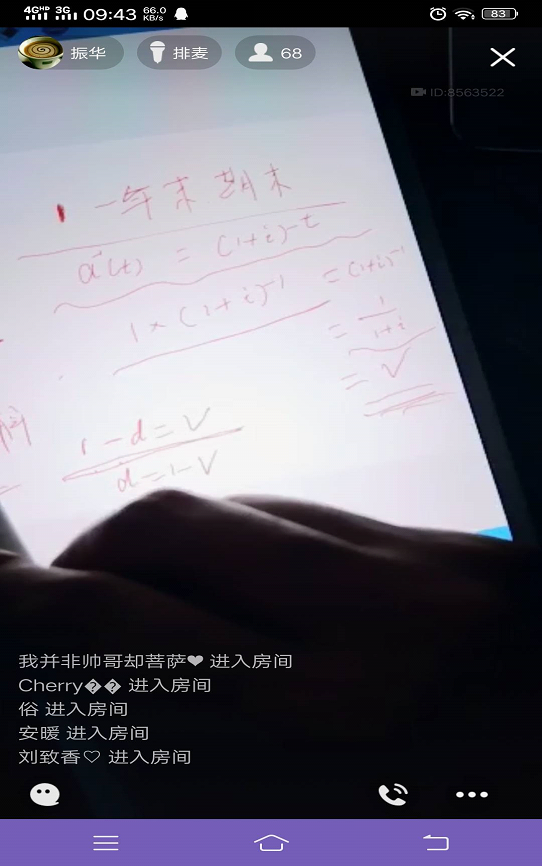 4GHD 3G 09:43 66.0 KB/s 83
振华 排麦 68
ID:8563522
1 一年末 期末
a⁻¹(t) = (1+i)⁻ᵗ
1×(1+i)⁻¹ = (1+i)⁻¹
= 1/(1+i)
= V
1-d=V
d=1-V
我并非帅哥却菩萨❤ 进入房间
Cherry�� 进入房间
俗 进入房间
安暖 进入房间
刘致香♡ 进入房间